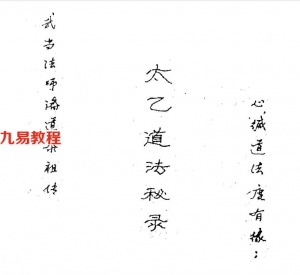 心缄道法度有缘；
太乙道法秘录
武当法师
道
祖传
九易教程
www.